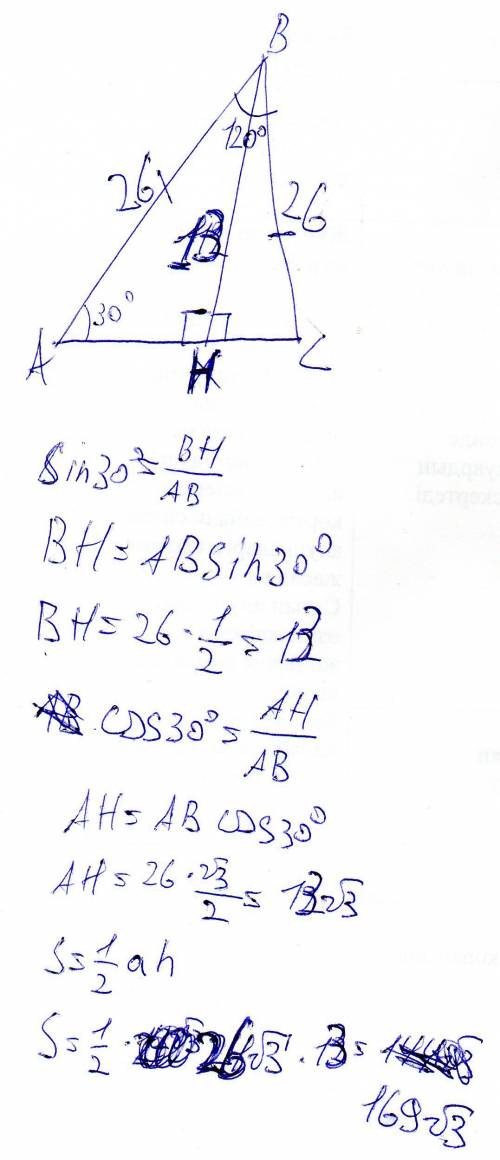 B
120°
26
26
13
30°
A
H
C
Sin30°= BH/AB
BH = AB Sin30°
BH = 26 · 1/2 = 13
cos30° = AH/AB
AH = AB cos30°
AH = 26 · √3/2 = 13√3
S = 1/2 ah
S = 1/2 · 26√3 · 13 =
169√3